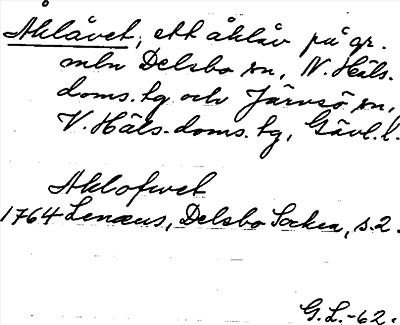 Åhlåvet, ett åhlåv på gr.
mln Delsbo sn, N. Häls.
doms. hg och Järvsö sn,
V. Häls. doms. hg, Gävl. l.
Ahlofwet
1764 Lenæus, Delsbo Socken, s. 2.
G. L. -62.